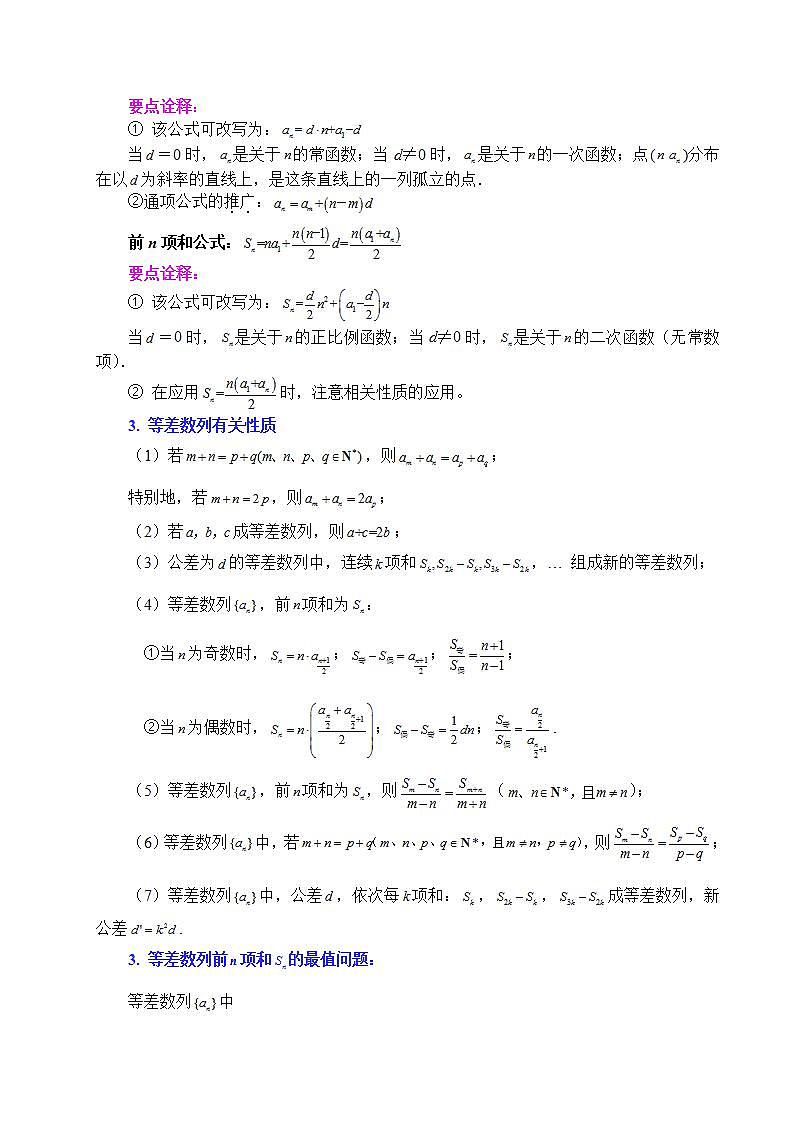 要点诠释：
① 该公式可改写为：aₙ= d·n+a₁−d
当 d =0 时，aₙ是关于 n的常函数；当 d≠0 时，aₙ是关于 n的一次函数；点 (n aₙ)分布
在以 d 为斜率的直线上，是这条直线上的一列孤立的点．
②通项公式的推广：aₙ = aₘ+(n−m)d
前 n 项和公式：Sₙ=na₁+n(n−1)/2 d=n(a₁+aₙ)/2
要点诠释：
① 该公式可改写为：Sₙ=d/2 n²+(a₁−d/2)n
当 d =0 时，Sₙ是关于 n的正比例函数；当 d≠0 时，Sₙ是关于 n的二次函数（无常数
项）．
② 在应用 Sₙ=n(a₁+aₙ)/2 时，注意相关性质的应用。
3. 等差数列有关性质
（1）若 m+n= p+q(m、n、p、q∈N*)，则 aₘ+aₙ=a_p+a_q；
特别地，若 m+n=2p，则 aₘ+aₙ=2a_p；
（2）若 a，b，c 成等差数列，则 a+c=2b；
（3）公差为 d 的等差数列中，连续 k 项和 S_k,S_{2k}−S_k,S_{3k}−S_{2k}，… 组成新的等差数列；
（4）等差数列{aₙ}，前 n项和为 Sₙ：
①当 n 为奇数时，Sₙ=n·a_{(n+1)/2}；S奇−S偶=a_{(n+1)/2}；S奇/S偶=(n+1)/(n−1)；
②当 n 为偶数时，Sₙ=n·((a_{n/2}+a_{n/2+1})/2)；S偶−S奇=1/2 dn；S奇/S偶=a_{n/2}/a_{n/2+1}．
（5）等差数列{aₙ}，前 n项和为 Sₙ，则 (Sₘ−Sₙ)/(m−n)=S_{m+n}/(m+n)（m、n∈N*，且m≠n）；
（6）等差数列{aₙ}中，若 m+n= p+q（m、n、p、q∈N*，且m≠n，p≠q），则 (Sₘ−Sₙ)/(m−n)=(S_p−S_q)/(p−q)；
（7）等差数列{aₙ}中，公差 d，依次每 k项和：S_k，S_{2k}−S_k，S_{3k}−S_{2k} 成等差数列，新
公差 d'=k²d．
3. 等差数列前 n 项和 Sₙ 的最值问题：
等差数列{aₙ}中